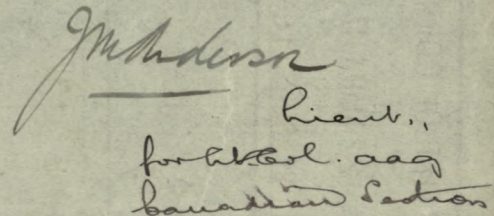 JM Anderson
Lieut.,
for Lt Col. aag
Canadian Section